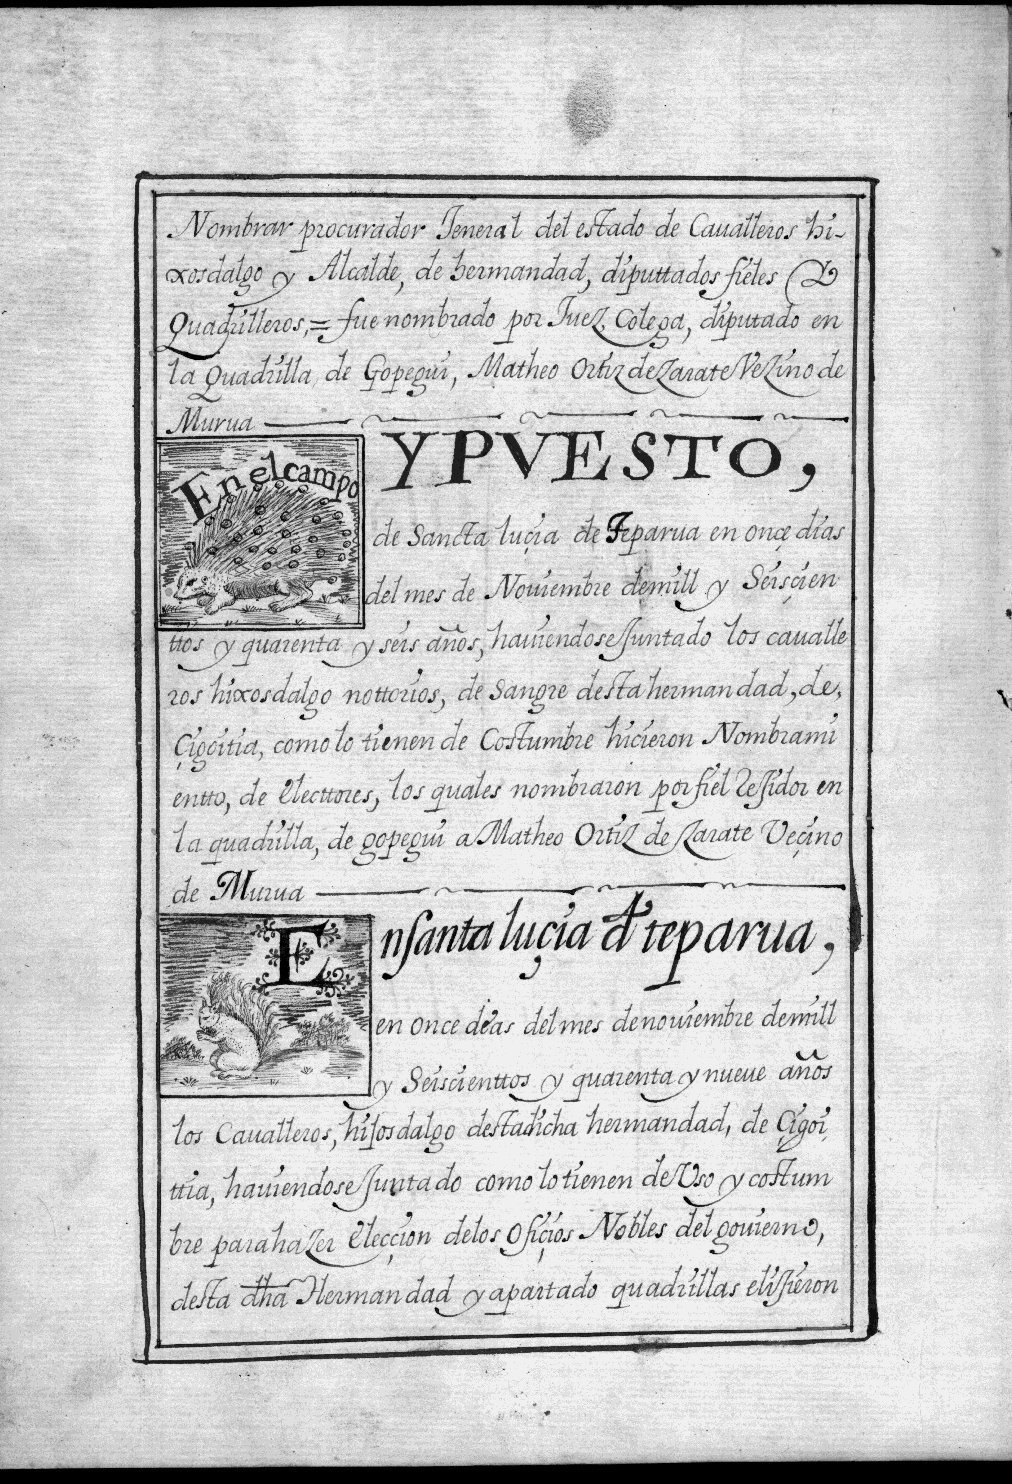 Nombrar procurador Jeneral del estado de Caualleros hi-
xosdalgo y Alcalde, de hermandad, diputtados fieles y
Quadrilleros, = fue nombrado por Juez, Colega, diputado en
la Quadrilla de Gopegui, Matheo Ortiz de Zarate Vezino de
Murua
En el campo
Y PVESTO,
de Sancta luçia de Teparua en onçe dias
del mes de Nouiembre de mill y Seisçien
ttos y quarenta y seis años, hauiendose Juntado los caualle
ros hixosdalgo nottorios, de Sangre desta hermandad, de,
Çigoitia, como lo tienen de Costumbre hicieron Nombrami
entto, de Electtores, los quales nombraron por fiel Rejidor en
la quadrilla, de gopegui a Matheo Ortiz de Zarate Veçino
de Murua
E
n santa luçia de teparua,
en once dias del mes de nouiembre de mill
y Seiscienttos y quarenta y nueue años
los Caualleros, hijosdalgo desta dicha hermandad, de Çigoi
ttia, hauiendose Juntado como lo tienen de Vso y costum
bre para hazer Elecçion de los Ofiçios Nobles del gouierno,
desta dha Hermandad y apartado quadrillas elijieron